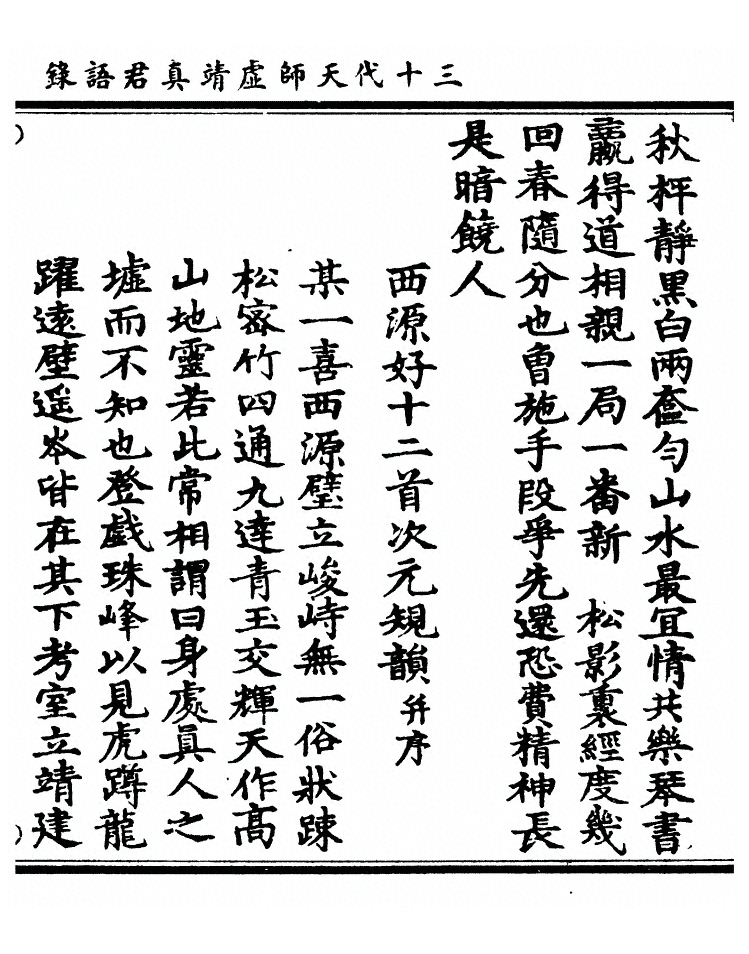 三十代天師虛靖真君語錄
秋枰靜黑白兩奩勻山水最宜情共樂琴書
贏得道相親一局一番新　松影裏經度幾
回春隨分也曾施手段爭先還恐費精神長
是暗饒人
西源好十二首次元規韻并序
某一喜西源壁立峻峙無一俗狀踈
松密竹四通九達青玉交輝天作高
山地靈若此常相謂曰身處真人之
墟而不知也登戲珠峰以見虎蹲龍
躍遠壁遥岑皆在其下考室立靖建